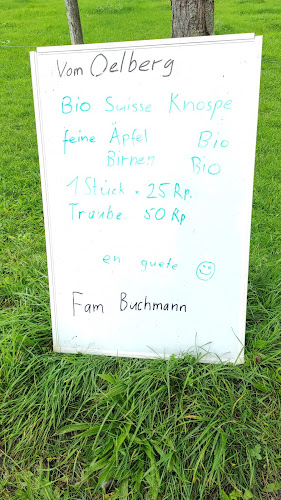 Vom Oelberg
Bio Suisse Knospe
feine Äpfel Bio
Birnen Bio
1 Stück = 25 Rp.
Traube 50 Rp
en guete ☺
Fam Buchmann